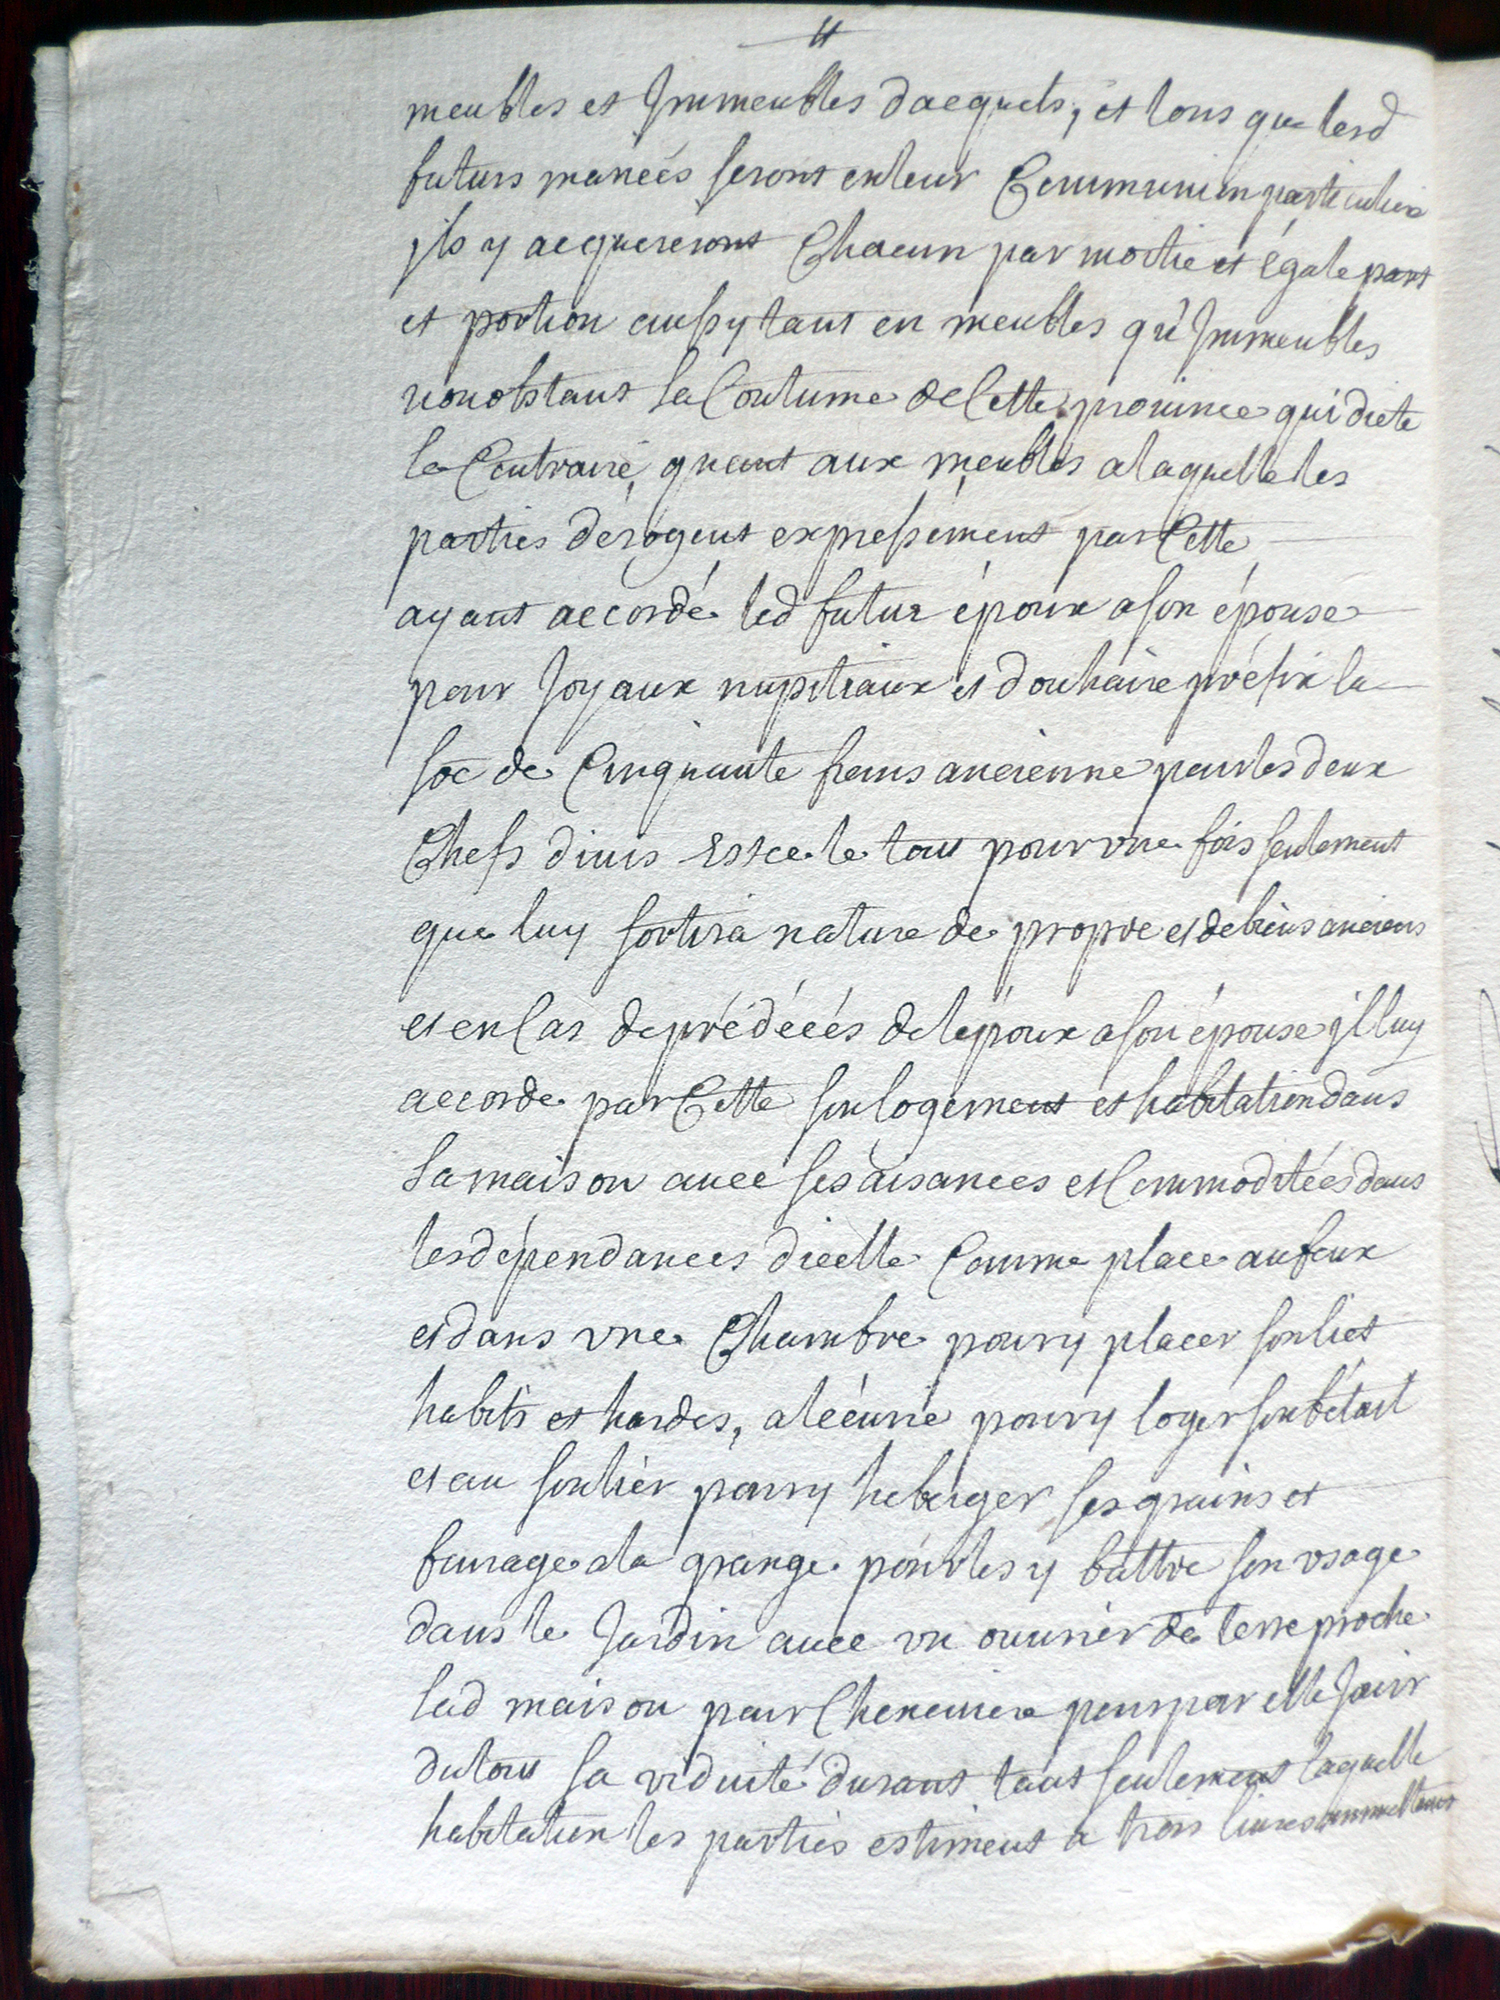 meubles et Jmmeubles dacquets, et lors que lesd
futurs mariées seront en leur Communion particuliere
jls y acquereront Chacun par moitie et égale part
et portion aussy tant en meubles qu'Jmmeubles
nonobstant la Coutume de Cette prouince qui dicte
le Contraire, quant aux meubles a laquelle les
parties dérogent expressément par Cette
ayant accordé led futur époux a son épouse
pour Joyaux nuptiaux et douhaire préfix la
soe de Cinquante frans ancienne pour les deux
Chefs diuis Estce le tout pour vne fois seulement
que luy sortira nature de propre et de biens anciens
et en Cas de prédécés de lépoux a son épouse jl luy
accorde par Cette son logement et habitation dans
sa maison auec ses aisances et Commoditées dans
les dépendances dicelle Comme place au feux
et dans vne Chambre pour y placer son liet
habits et hardes, a lécurie pour y loger son bétail
et au soulier pour y heberger ses grains et
fourage a la grange pour les y battre son vsage
dans le Jardin auec vn ouurier de terre proche
lad maison pour Cheneuiere pour par elle Jouir
du tout sa viduité durant tant seulement laquelle
habitation les parties estiment a trois liures annuellement